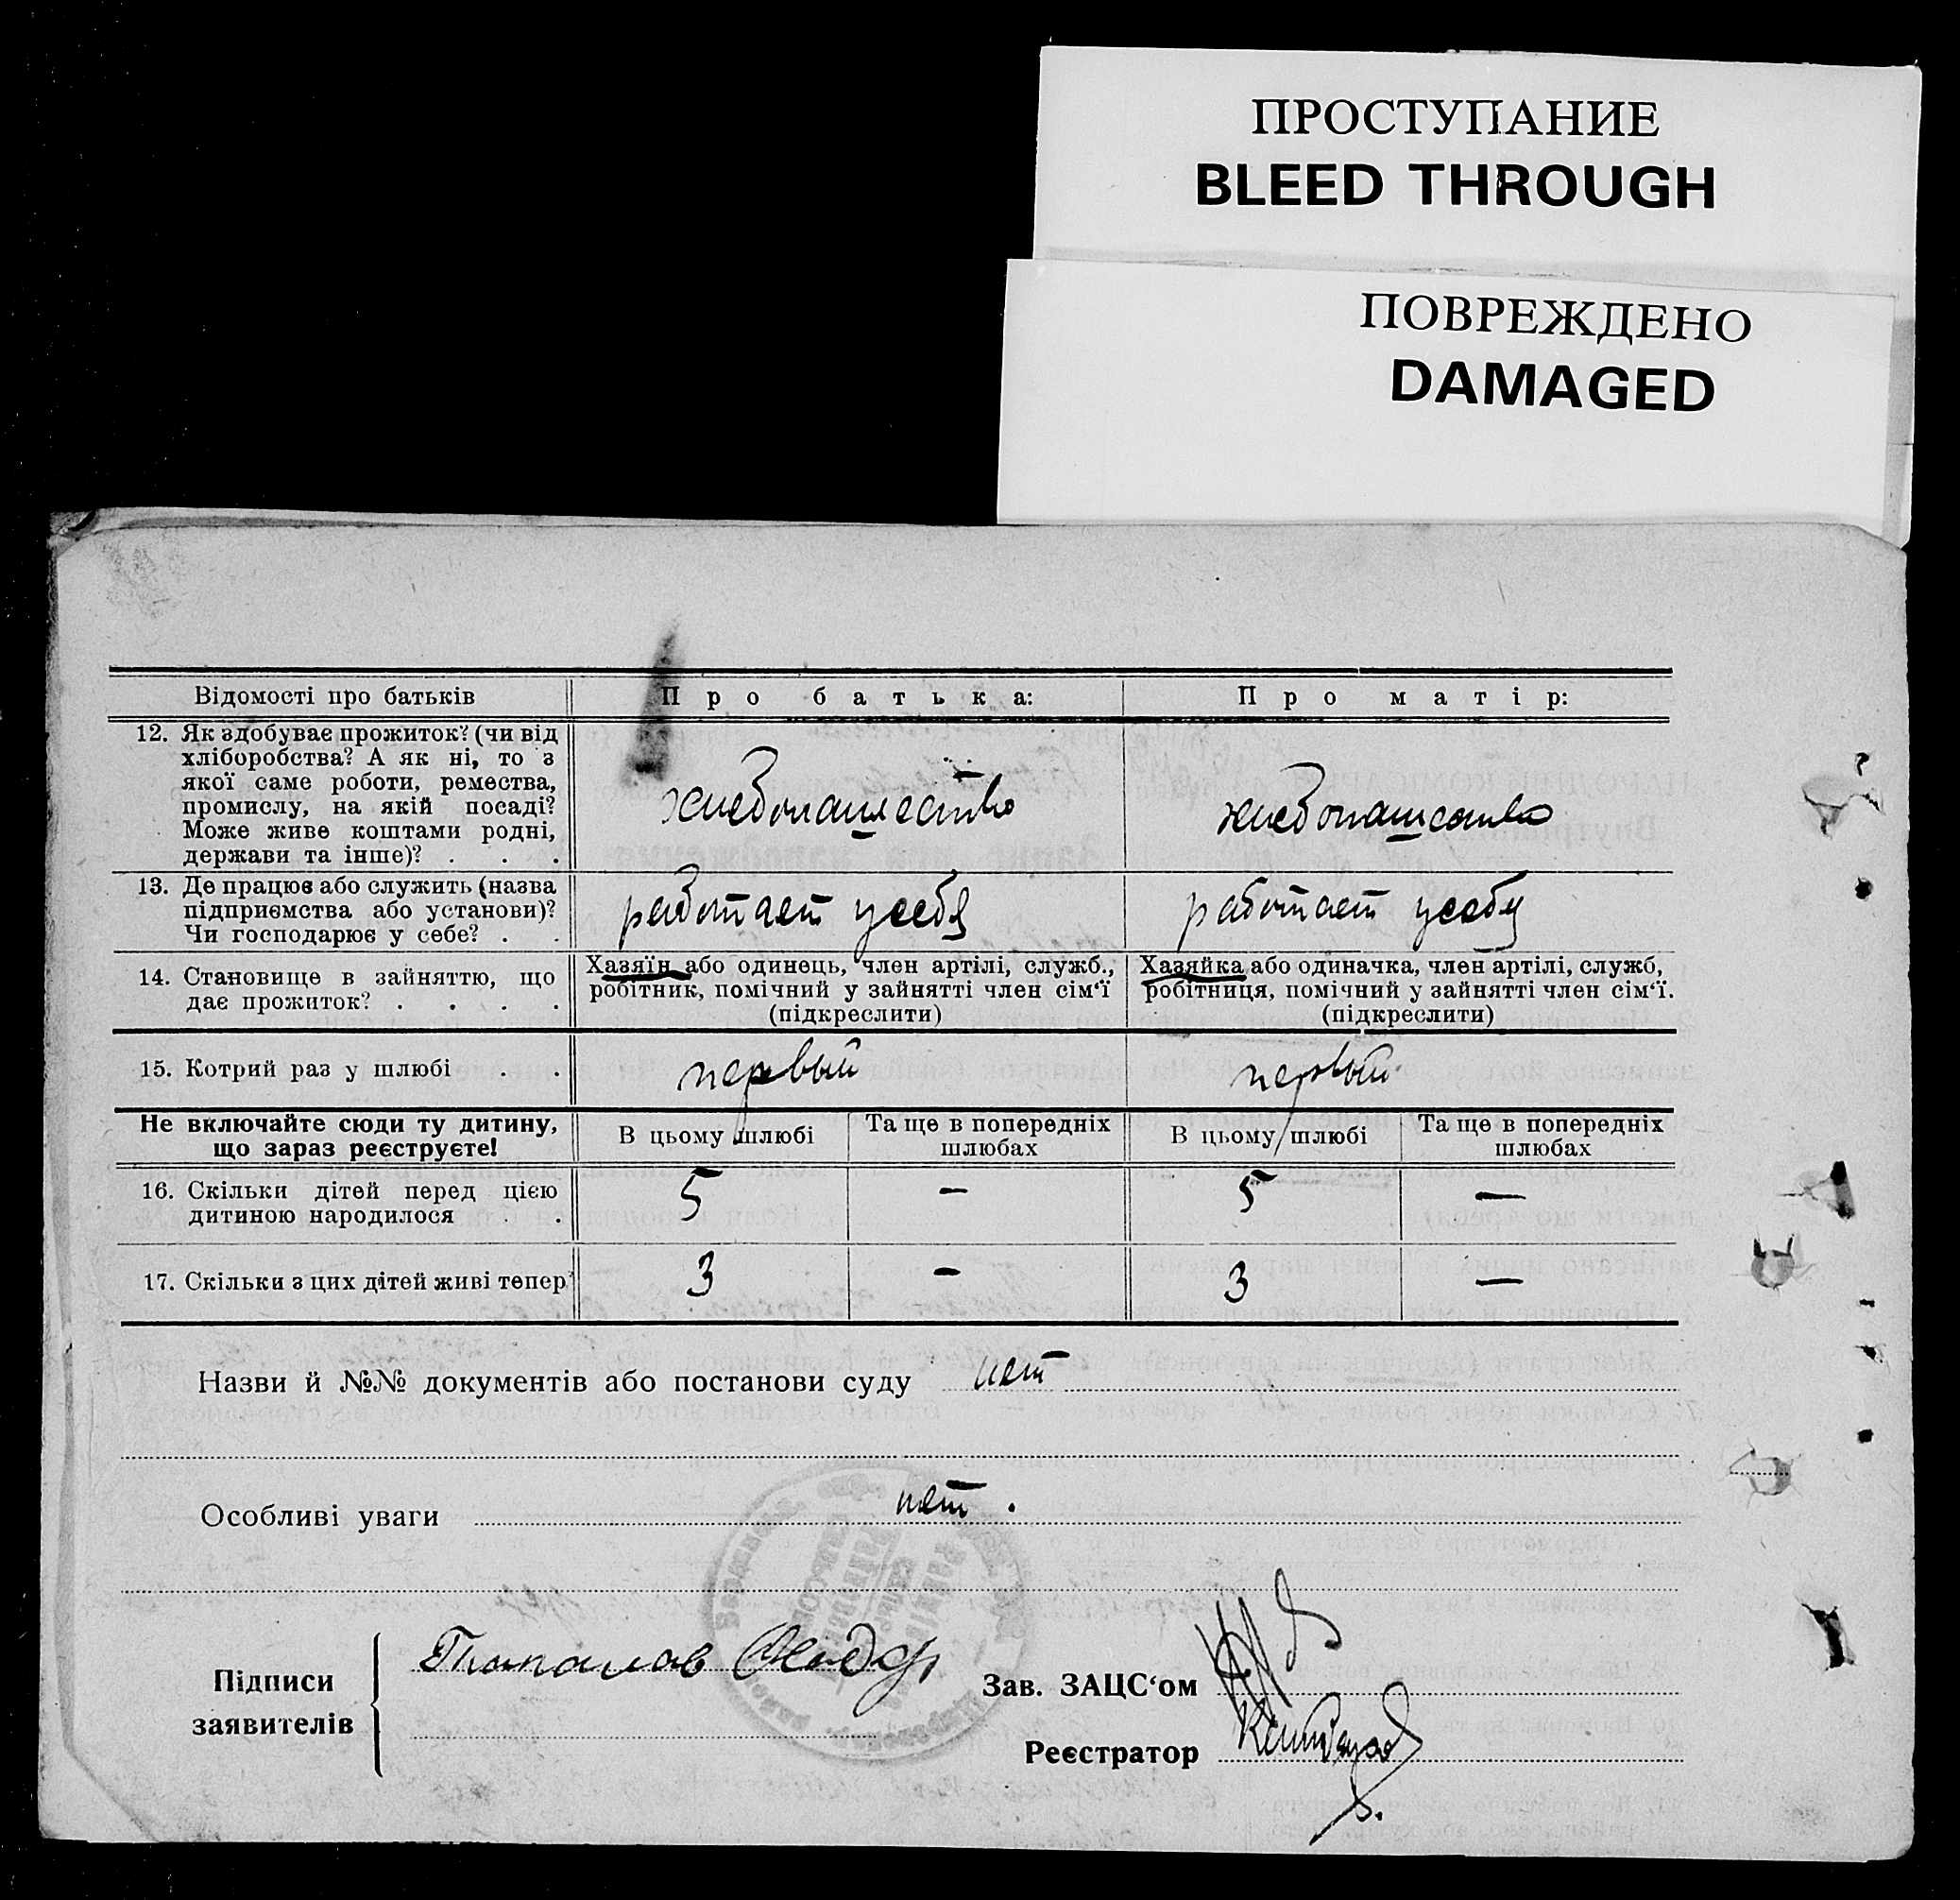 ПРОСТУПАНИЕ
BLEED THROUGH
ПОВРЕЖДЕНО
DAMAGED
Відомості про батьків
Про батька:
Про матір:
12. Як здобуває прожиток? (чи від
хліборобства? А як ні, то з
якої саме роботи, ремества,
промислу, на якій посаді?
Може живе коштами родні,
держави та інше)? . . .
хлебопашество
хлебопашество
13. Де працює або служить (назва
підприємства або установи)?
Чи господарює у себе? . .
работает у себя
работает у себя
14. Становище в зайняттю, що
дає прожиток? . . . .
Хазяїн або одинець, член артілі, служб.,
робітник, помічний у зайнятті член сім‘ї
(підкреслити)
Хазяйка або одиначка, член артілі, служб,
робітниця, помічний у зайнятті член сім‘ї.
(підкреслити)
15. Котрий раз у шлюбі . .
первый
первый
Не включайте сюди ту дитину,
що зараз реєструєте!
В цьому шлюбі
Та ще в попередніх
шлюбах
В цьому шлюбі
Та ще в попередніх
шлюбах
16. Скільки дітей перед цією
дитиною народилося . .
5 — 5 —
17. Скільки з цих дітей живі тепер
3 — 3 —
Назви й №№ документів або постанови суду нет
Особливі уваги нет.
Підписи
заявителів
Зав. ЗАЦС‘ом
Реєстратор